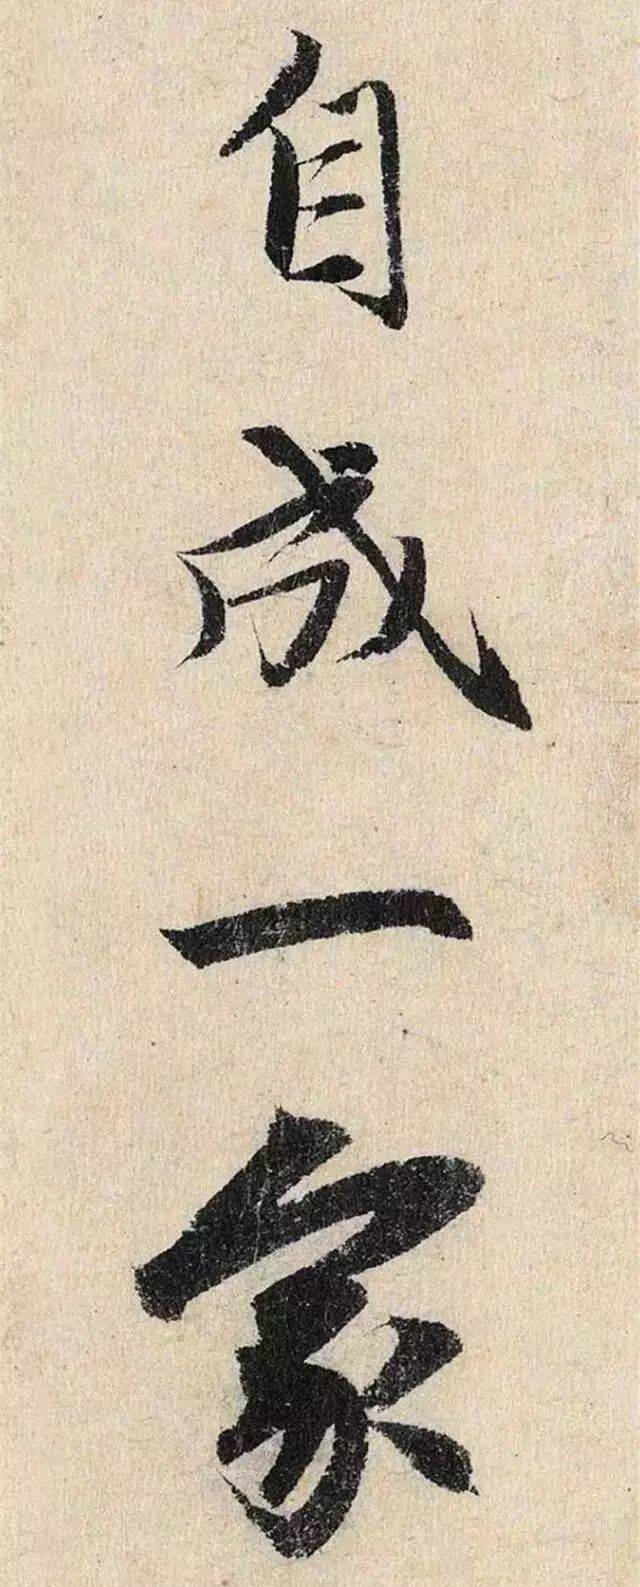 自成一家